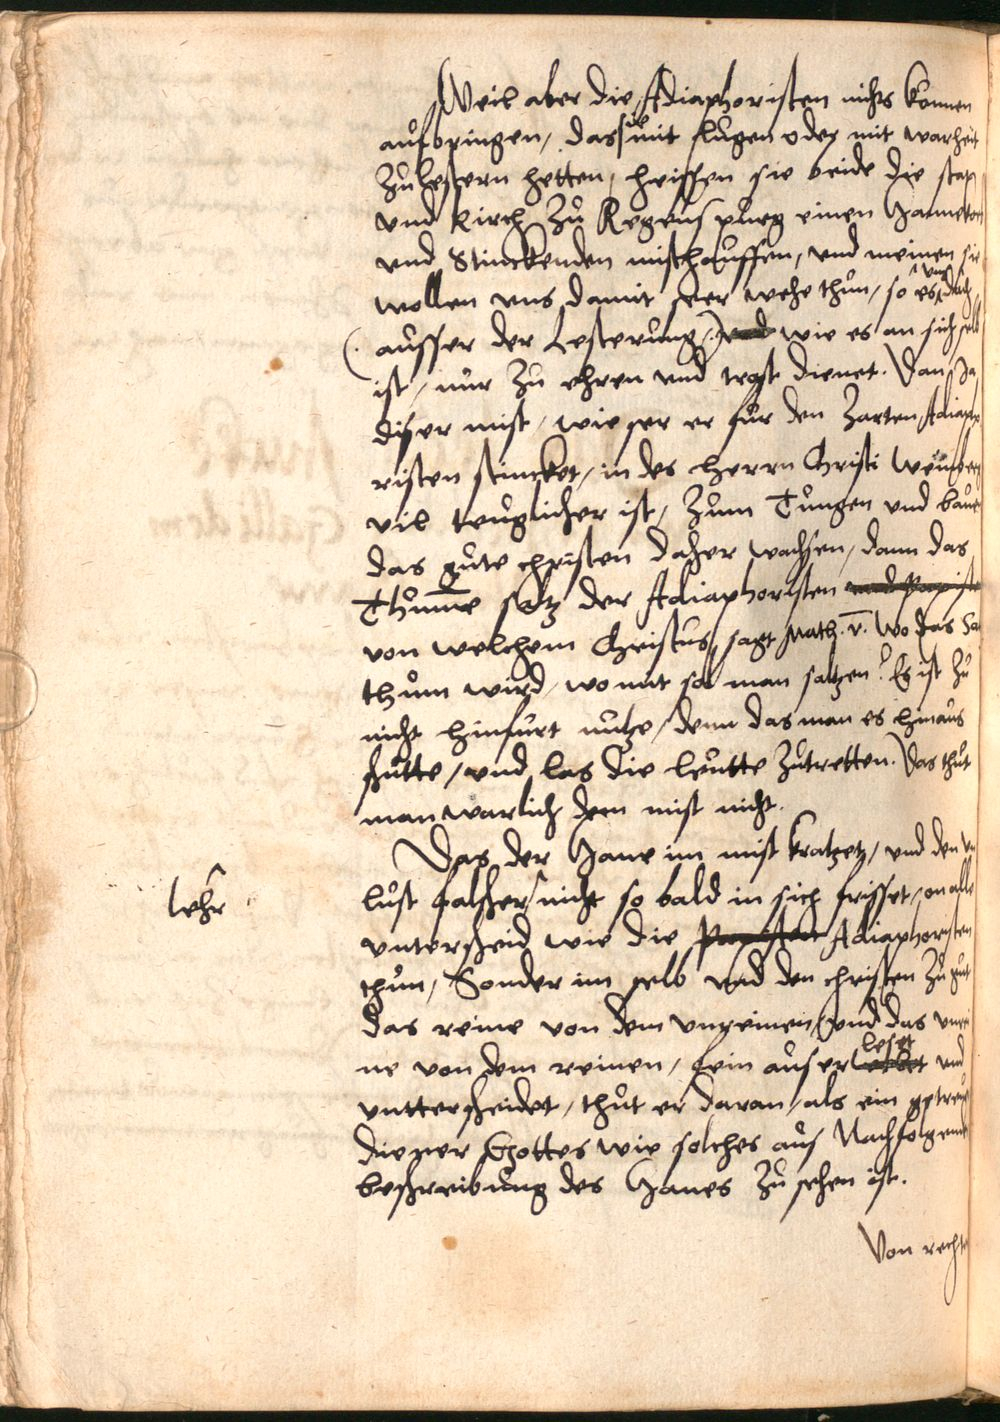 Weil aber die Adiaphoristen nichts konnen
aufbringen, das sie mit lugen oder mit warheit
zu lestern hetten, heissen sie beide die stat
und kirch zu Regenspurg einen Hanen
und stinckenden misthauffen, und meinen sie
wollen uns damit seer wehe thun, so es uns doch
(ausser der Lesterung,) wie es an sich selb
ist, nur zu ehren und trost dienet. Dan Ja
diser mist, wie ser er fur den Zarten Adiapho
risten stincket, in des Herrn Christi Weinberg
vil teuglicher ist, zum Tungen und bauen
das gute christen daher wachsen, dann das
Thumme saltz der Adiaphoristen und Papisten
von welchem Christus sagt Math. v. Wo das Sa
thum wird, womit sol man saltzen? Es ist zu
nicht hinfurt nutze, denn das man es hinaus
schutte, und las die leutte zutretten. Das thut
man warlich dem mist nicht.
Das der Hane im mist kratzet, und den un
lust falscher lehr nicht so bald in sich frisset, on alle
unterscheid wie die Papisten Adiaphoristen
thun, Sonder im selb und den christen zu gut
das reine von dem unreinen, und das unrei
ne von dem reinen, fein auserleset und
untterscheidet, thut er daran, als ein getreuer
diener Gottes wie solches aus Nachfolgender
beschreibung des Hanes zu sehen ist.
Von rechte